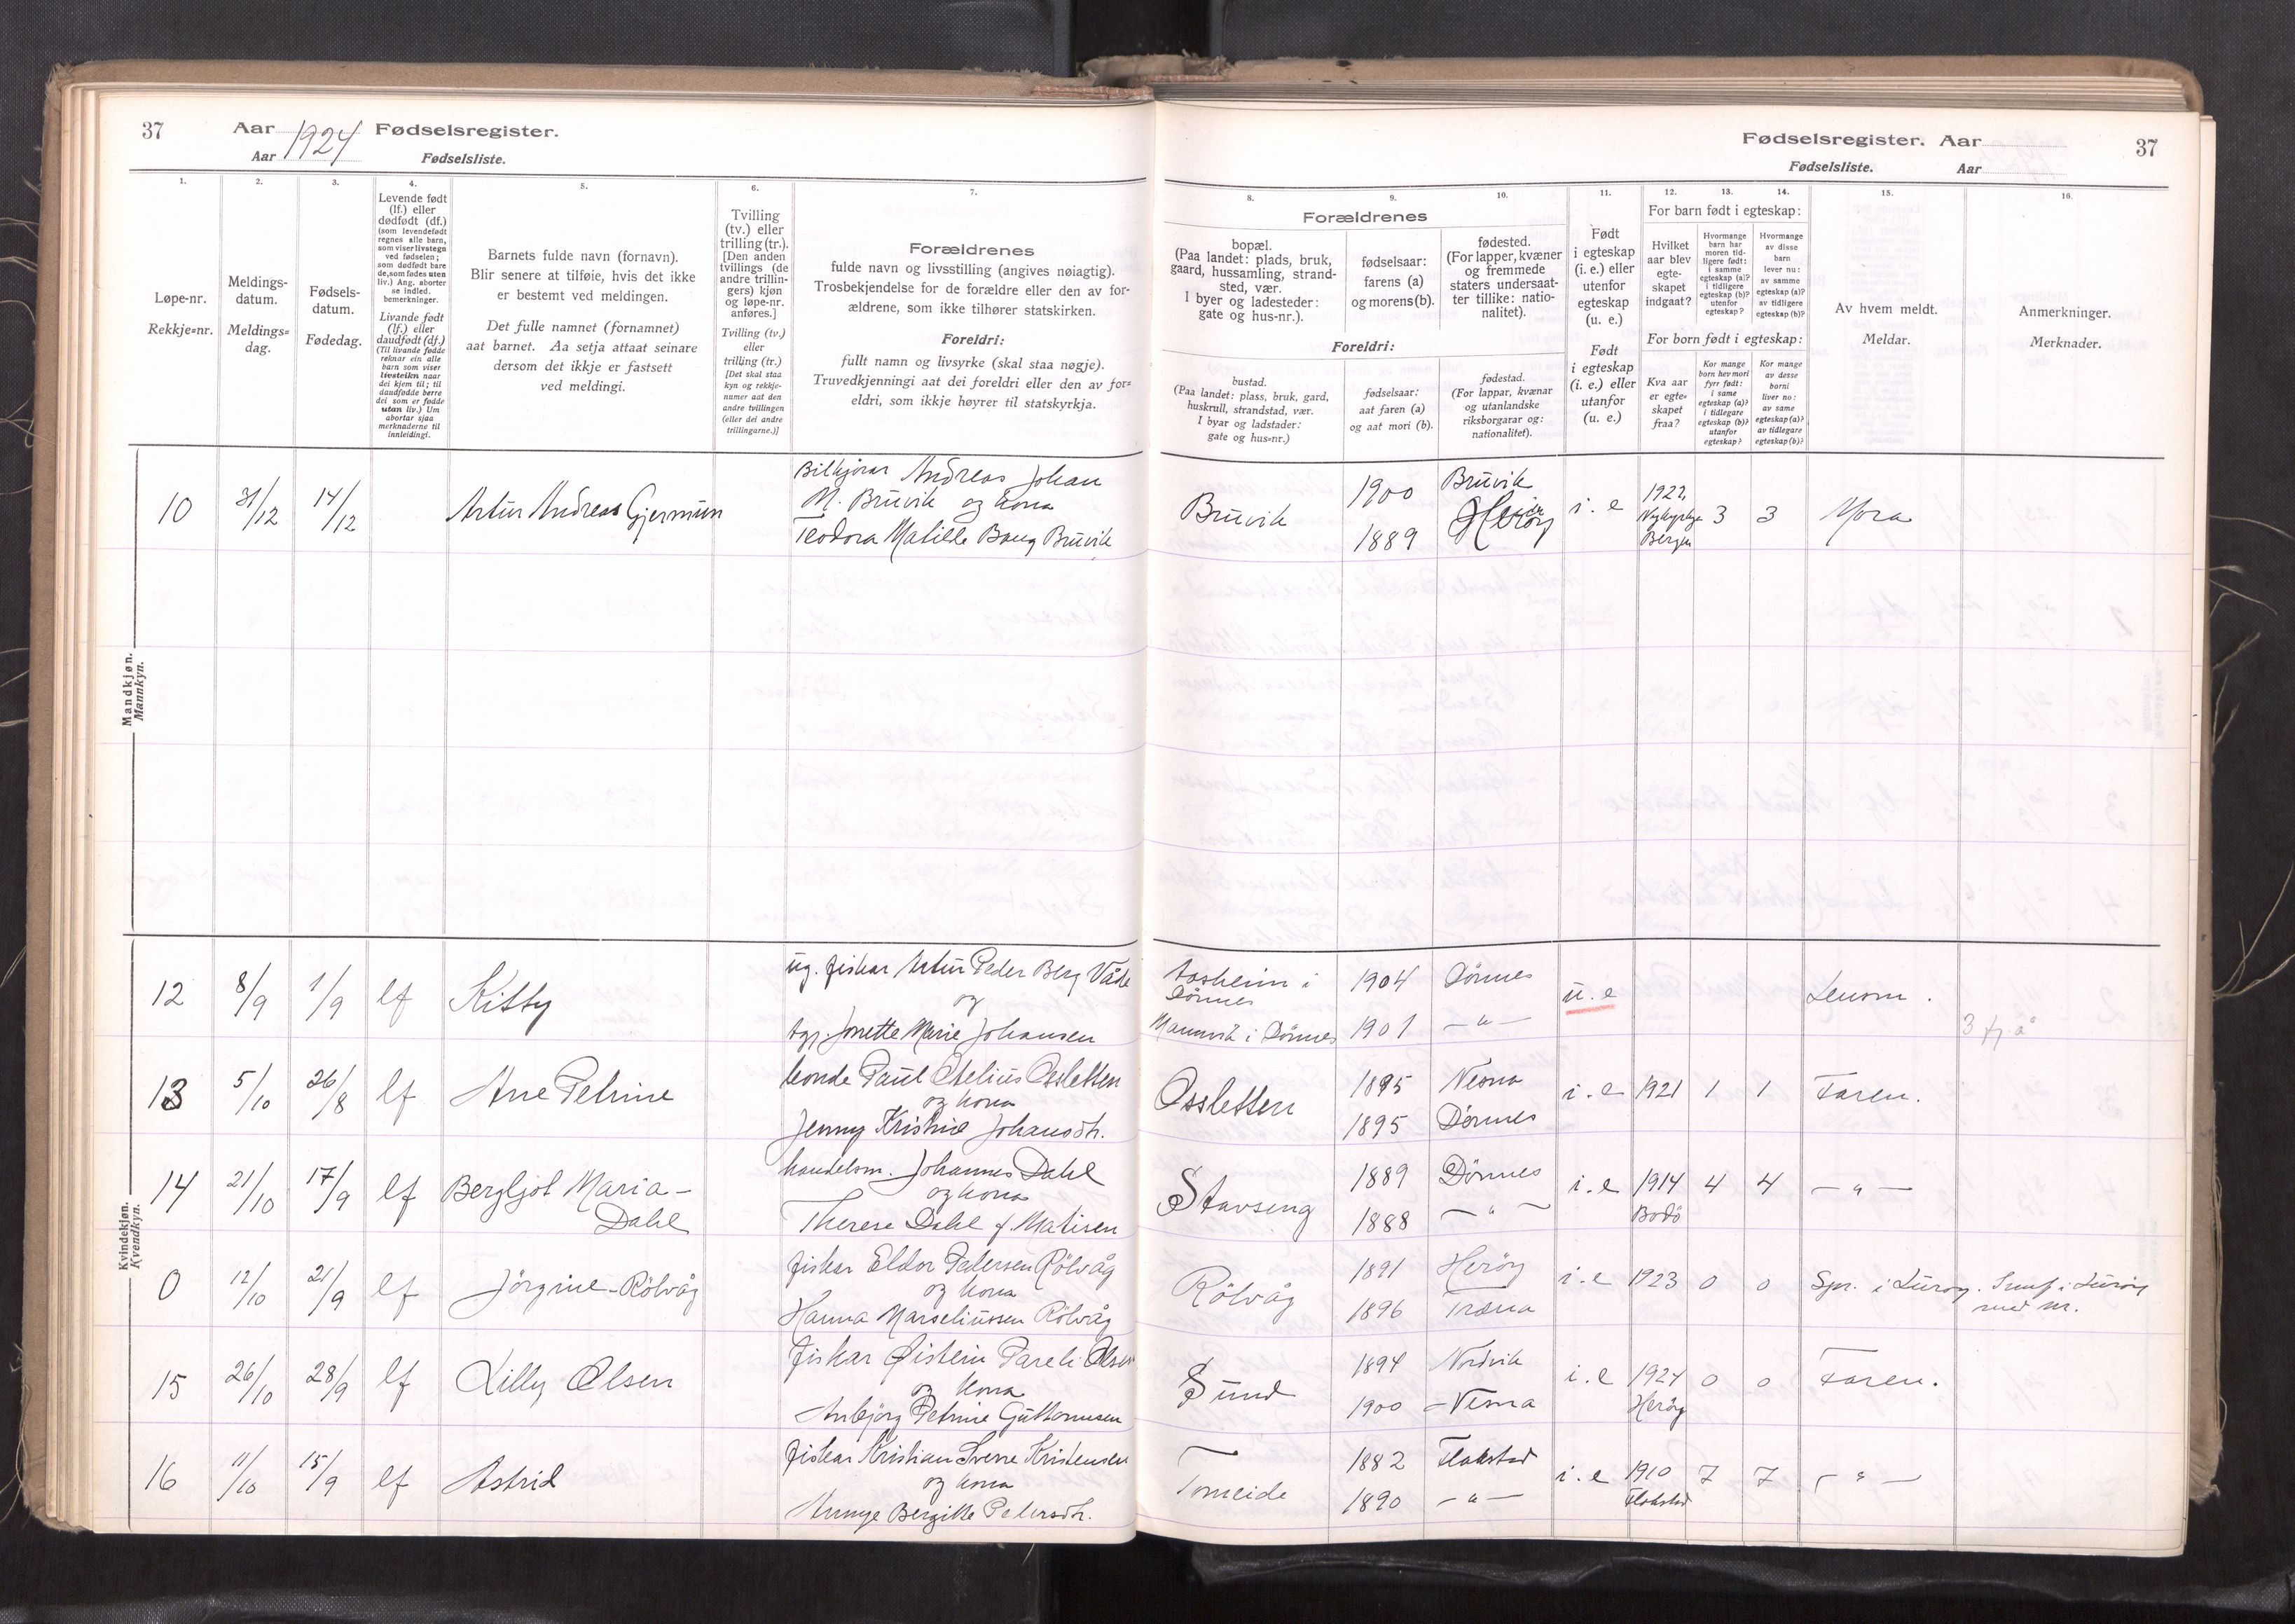 37 Aar 1924 Fødselsregister.
Aar Fødselsliste.
1.
Løpe-nr.
Rekkje=nr.
2.
Meldings-
datum.
Meldings=
dag.
3.
Fødsels-
datum.
Fødedag.
4.
Levende født
(lf.) eller
dødfødt (df.)
(som levendefødt
regnes alle barn,
som viser livstegn
ved fødselen;
som dødfødt bare
de, som fødes uten
liv.) Ang. aborter
se indled.
bemerkninger.
Livande født
(lf.) eller
daudfødt (df.)
(Til livande fødde
reknar ein alle
barn som viser
livsteikn naar
dei kjem til; til
daudfødde berre
dei som er fødde
utan liv.) Um
abortar sjaa
merknaderne til
innleidingi.
5.
Barnets fulde navn (fornavn).
Blir senere at tilføie, hvis det ikke
er bestemt ved meldingen.
Det fulle namnet (fornamnet)
aat barnet. Aa setja attaat seinare
dersom det ikkje er fastsett
ved meldingi.
6.
Tvilling
(tv.) eller
trilling (tr.).
[Den anden
tvillings (de
andre trillin-
gers) kjøn
og løpe-nr.
anføres.]
Tvilling (tv.)
eller
trilling (tr.)
[Det skal staa
kyn og rekkje-
numer aat den
andre tvillingen
(eller dei andre
trillingarne.)]
7.
Forældrenes
fulde navn og livsstilling (angives nøiagtig).
Trosbekjendelse for de forældre eller den av for-
ældrene, som ikke tilhører statskirken.
Foreldri:
fullt namn og livsyrke (skal staa nøgje).
Truvedkjenningi aat dei foreldri eller den av for=
eldri, som ikkje høyrer til statskyrkja.
Fødselsregister. Aar 37
Fødselsliste. Aar
8.
Forældrenes
bopæl.
(Paa landet: plads, bruk,
gaard, hussamling, strand-
sted, vær.
I byer og ladesteder:
gate og hus-nr.).
Foreldri:
bustad.
(Paa landet: plass, bruk, gard,
huskrull, strandstad, vær.
I byar og ladstader:
gate og hus=nr.)
9.
fødselsaar:
farens (a)
og morens (b).
fødselsaar:
aat faren (a)
og aat mori (b).
10.
fødested.
(For lapper, kvæner
og fremmede
staters undersaat-
ter tillike: natio-
nalitet).
fødestad.
(For lappar, kvænar
og utanlandske
riksborgarar og:
nationalitet).
11.
Født
i egteskap
(i. e.) eller
utenfor
egteskap
(u. e.)
Født
i egteskap
(i. e.) eller
utanfor
(u. e.)
12. 13. 14.
For barn født i egteskap:
Hvilket
aar blev
egte-
skapet
indgaat?
Hvormange
barn har
moren tid-
ligere født:
i samme
egteskap (a)?
i tidligere
egteskap (b)?
utenfor
egteskap?
Hvormange
av disse
barn
lever nu:
av samme
egteskap (a)?
av tidligere
egteskap (b)?
For born født i egteskap:
Kva aar
er egte=
skapet
fraa?
Kor mange
born hev mori
fyrr født:
i same
egteskap (a)?
i tidlegare
egteskap (b)?
utanfor
egteskap?
Kor mange
av desse
borni
liver no:
av same
egteskap (a)?
av tidlegare
egteskap (b)?
15.
Av hvem meldt.
Meldar.
16.
Anmerkninger.
Merknader.
Mandkjøn.
Mannkyn.
10 31/12 14/12 Artur Andreas Gjermun
Bilkjörar Andreas Johan
M. Bruvik og kona
Teodora Matille Baug Bruvik
Bruvik 1900 Bruvik
1889 Heröy
i. e 1922 Nykyrkje Bergen 3 3 Mora
Kvindekjøn.
Kvendkyn.
12 8/9 1/9 lf Kitty
ug. fiskar Artur Peder Berg Våde
og
tgj. Jonette Marie Johansen
Aasheim i
Dönnes 1904 Dönnes
Mannvik i Dönnes 1901 — " —
u. e Lensm.
13 5/10 26/8 lf Arne Petrine
bonde Paul Otelius Ossletten
og kona
Jenny Kristine Johansdtr.
Ossletten 1895 Nesna
1895 Dönnes
i. e 1921 1 1 Faren.
14 21/10 17/9 lf Bergljot Maria -
Dahl
handelsm. Johannes Dahl
og kona
Therese Dahl f. Matisen
Stavseng 1889 Dönnes
1888 — " —
i. e 1914 Bodö 4 4 — " —
0 12/10 21/9 lf Jörgine - Rölvåg
fiskar Eldor Pedersen Rölvåg
og kona
Hanna Marseliussen Rölvåg
Rölvåg 1891 Heröy
1896 Træna
i. e 1923 0 0 Spr. i Luröy. Innf. i Luröy
med nr.
15 26/10 28/9 lf Lilly Olsen
fiskar Øistein Pareli Olsen
og kona
Anbjörg Petrine Guttormsen
Sund 1894 Nordvik
1900 - Nesna
i. e 1924 Heröy 0 0 Faren.
16 11/10 15/9 lf Astrid
fiskar Kristian Sverre Kristensen
og kona
Bergitte Petersdtr.
Tomeide 1882 Flakstad
1890 — " —
i. e 1910 Flakstad 7 7 — " —